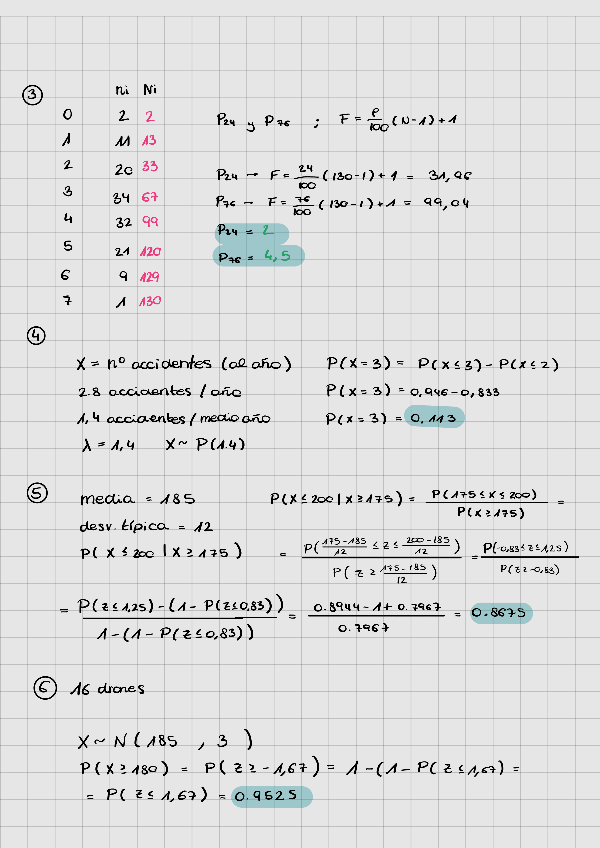 ③ ni Ni
0 2 2
1 11 13
2 20 33
3 34 67
4 32 99
5 21 120
6 9 129
7 1 130
P₂₄ y P₇₆ ; F = P/100 (N-1)+1
P₂₄ → F = 24/100 (130-1)+1 = 31,96
P₇₆ → F = 76/100 (130-1)+1 = 99,04
P₂₄ = 2
P₇₆ = 4,5
④
X = nº accidentes (al año)
2.8 accidentes / año
1,4 accidentes / medio año
λ = 1,4 X ~ P(1.4)
P(X = 3) = P(X ≤ 3) - P(X ≤ 2)
P(X = 3) = 0,946 - 0,833
P(X = 3) = 0,113
⑤ media = 185
desv. típica = 12
P( X ≤ 200 | X ≥ 175 )
P(X ≤ 200 | X ≥ 175) = P(175 ≤ X ≤ 200) / P(X ≥ 175) =
= P( 175-185/12 ≤ Z ≤ 200-185/12 ) / P( Z ≥ 175-185/12 ) = P(-0,83 ≤ Z ≤ 1,25) / P(Z ≥ -0,83)
= P(Z ≤ 1,25) - (1 - P(Z ≤ 0,83)) / 1 - (1 - P(Z ≤ 0,83)) = 0.8944 - 1 + 0.7967 / 0.7967 = 0.8675
⑥ 16 drones
X ~ N ( 185 , 3 )
P( X ≥ 180 ) = P( Z ≥ - 1,67 ) = 1 - (1 - P( Z ≤ 1,67) =
= P( Z ≤ 1,67 ) = 0.9525